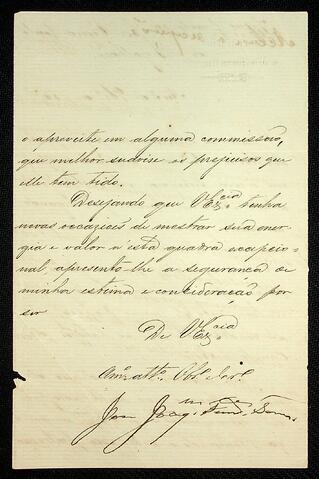 o aproveite em alguma commissão,
que melhor suavise os prejuisos que
elle tem tido.
Desejando que V Ex.cia tenha
novas occasiões de mostrar sua ener-
gia e valor n'esta quadra excepcio-
nal, apresento-lhe a segurança de
minha estima e consideração por
ser
De V Ex.cia
Am.º att.º Obr.
Joaq.